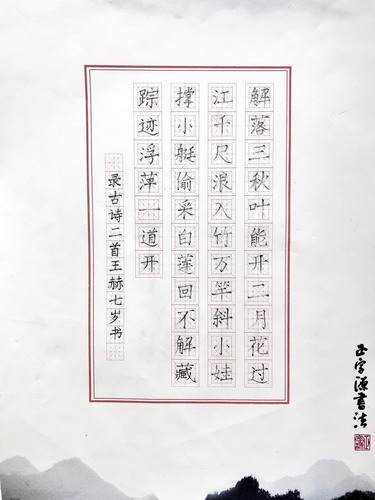 解落三秋叶能开二月花过
江千尺浪入竹万竿斜小娃
撑小艇偷采白莲回不解藏
踪迹浮萍一道开
录古诗二首王赫七岁书
正字源書法